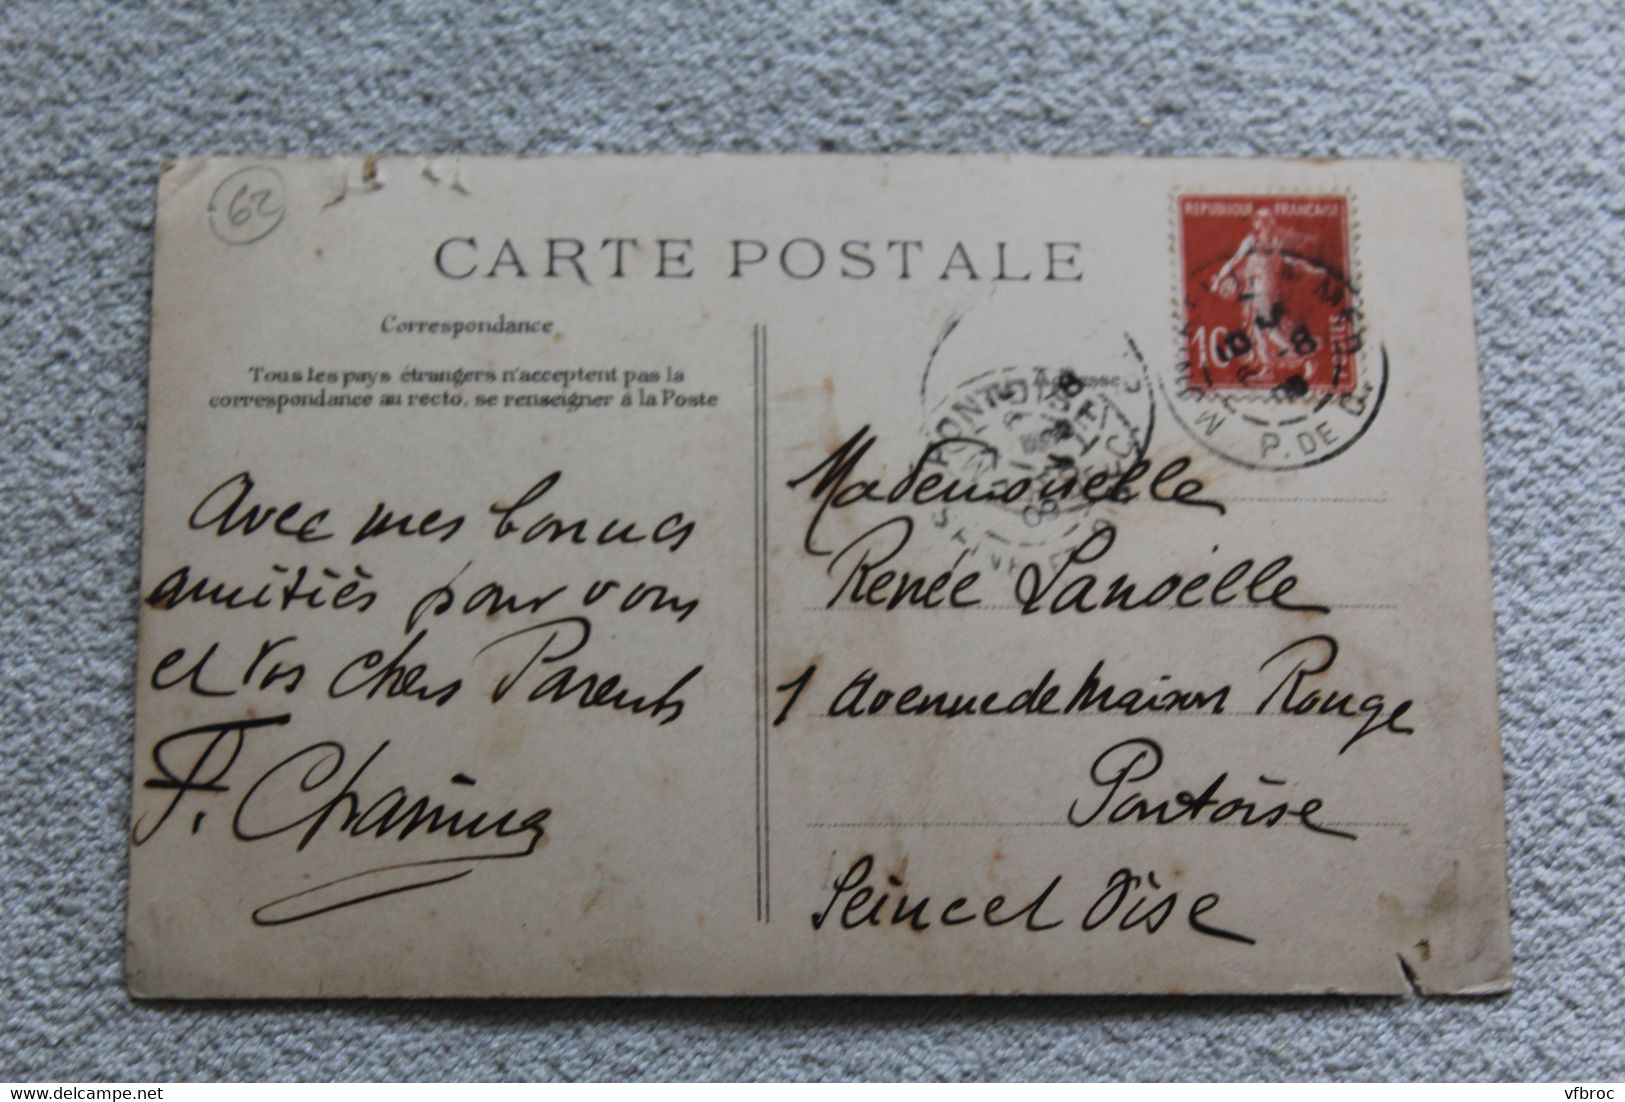 62
CARTE POSTALE
Correspondance
Tous les pays étrangers n'acceptent pas la
correspondance au recto, se renseigner à la Poste
Avec mes bonnes
amitiés pour vous
et vos chers Parents
REPUBLIQUE FRANÇAISE
10
POSTES
P. DE C.
PONTOISE
Adresse
Mademoiselle
Renée Lanoëlle
1 Avenue de Maison Rouge
Pontoise
Seine et Oise
Delcampe.net
vfbroc